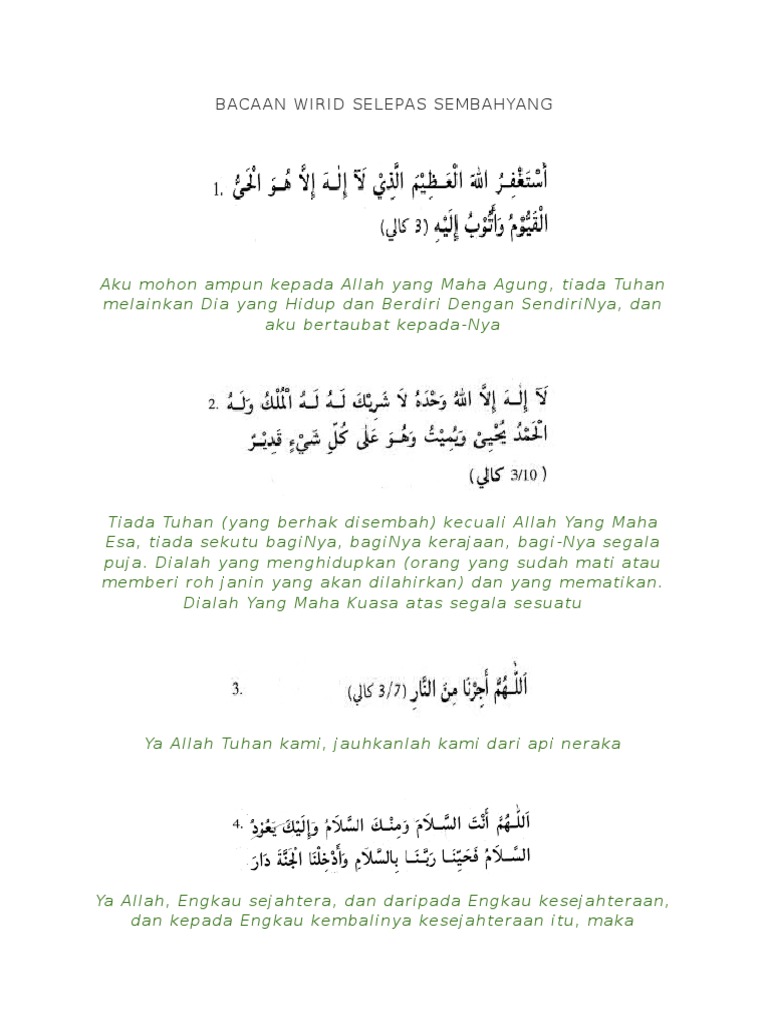 BACAAN WIRID SELEPAS SEMBAHYANG
1. أَسْتَغْفِرُ اللهَ الْعَظِيْمَ الَّذِيْ لَآ إِلٰهَ إِلاَّ هُوَ الْحَيُّ
الْقَيُّوْمُ وَأَتُوْبُ إِلَيْهِ (3 كالي)
Aku mohon ampun kepada Allah yang Maha Agung, tiada Tuhan
melainkan Dia yang Hidup dan Berdiri Dengan SendiriNya, dan
aku bertaubat kepada-Nya
2. لَآ إِلٰهَ إِلاَّ اللهُ وَحْدَهُ لاَ شَرِيْكَ لَهُ لَهُ الْمُلْكُ وَلَهُ
الْحَمْدُ يُحْيِيْ وَيُمِيْتُ وَهُوَ عَلٰى كُلِّ شَيْءٍ قَدِيْرٌ
(3/10 كالي)
Tiada Tuhan (yang berhak disembah) kecuali Allah Yang Maha
Esa, tiada sekutu bagiNya, bagiNya kerajaan, bagi-Nya segala
puja. Dialah yang menghidupkan (orang yang sudah mati atau
memberi roh janin yang akan dilahirkan) dan yang mematikan.
Dialah Yang Maha Kuasa atas segala sesuatu
3. اَللّٰهُمَّ أَجِرْنَا مِنَ النَّارِ (3/7 كالي)
Ya Allah Tuhan kami, jauhkanlah kami dari api neraka
4. اَللّٰهُمَّ أَنْتَ السَّلاَمَ وَمِنْكَ السَّلاَمُ وَإِلَيْكَ يَعُوْدُ
السَّلاَمُ فَحَيِّنَا رَبَّنَا بِالسَّلاَمِ وَأَدْخِلْنَا الْجَنَّةَ دَارَ
Ya Allah, Engkau sejahtera, dan daripada Engkau kesejahteraan,
dan kepada Engkau kembalinya kesejahteraan itu, maka